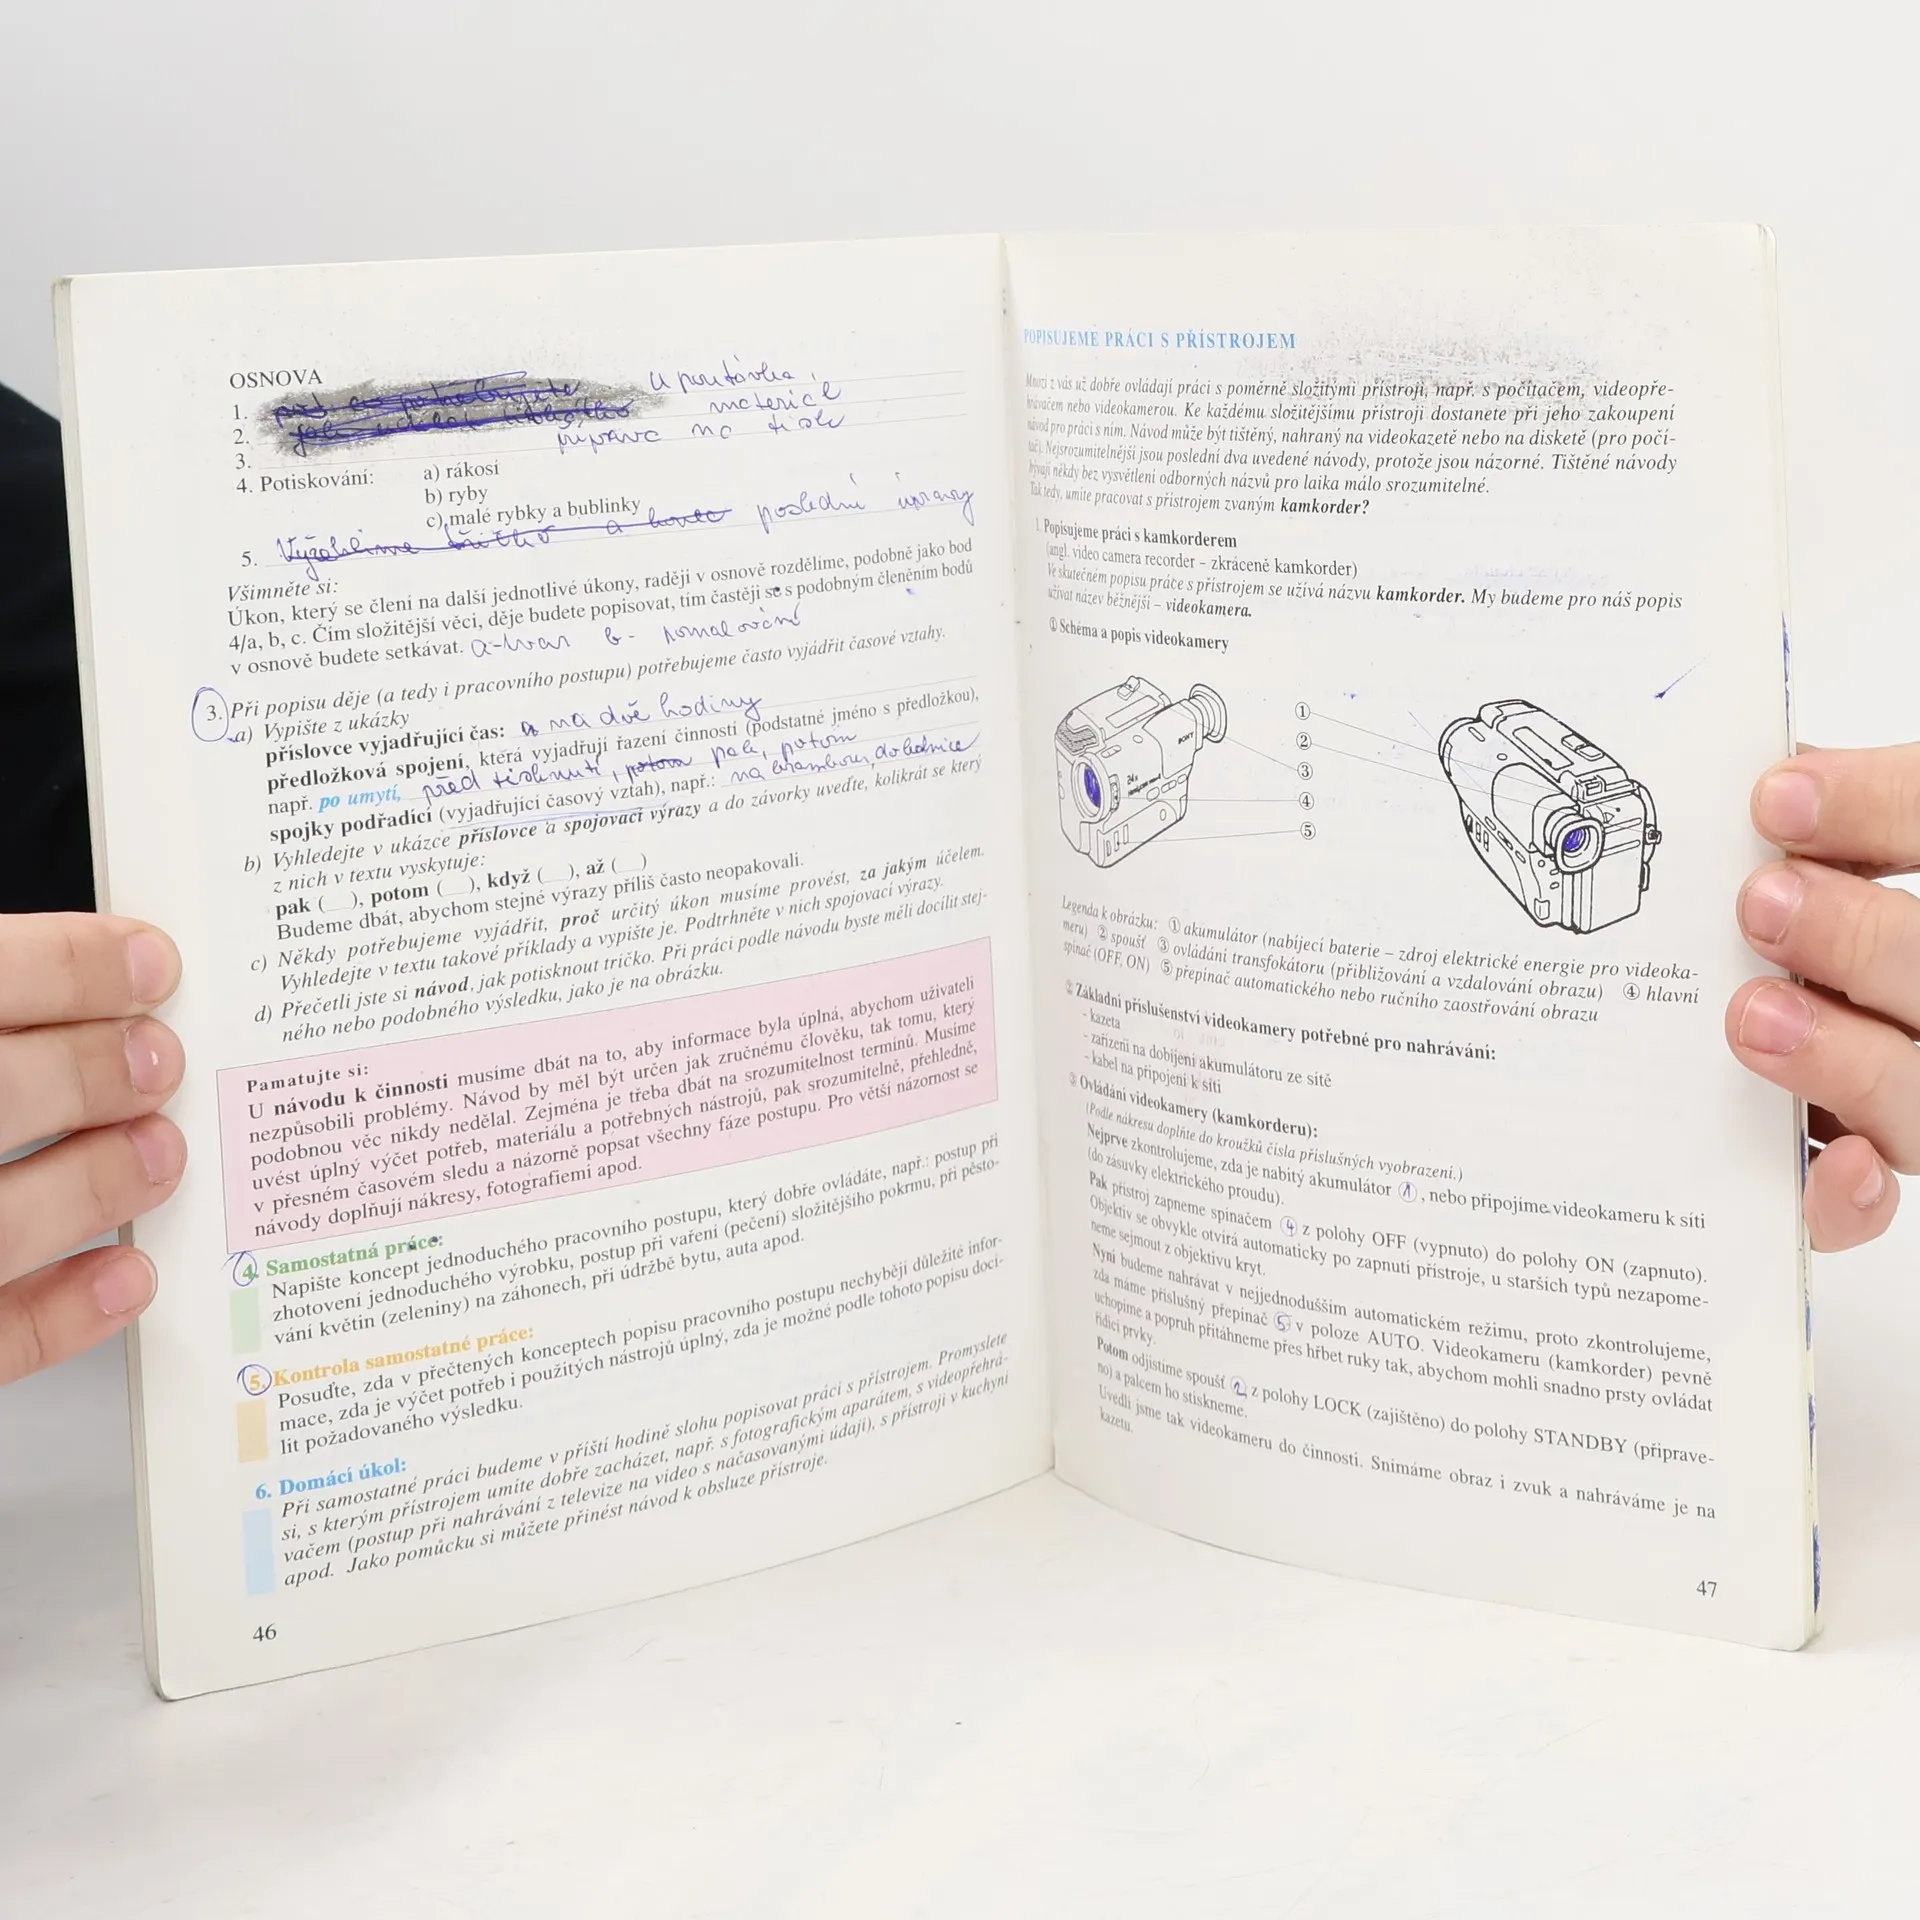 OSNOVA
1. upoutávka,
2. materiál
3. příprava na tisk
4. Potiskování: a) rákosí
b) ryby
c) malé rybky a bublinky
5. Vyžehlíme tričko a konec poslední úpravy
Všimněte si:
Úkon, který se člení na další jednotlivé úkony, raději v osnově rozdělíme, podobně jako bod
4/a, b, c. Čím složitější věci, děje budete popisovat, tím častěji se s podobným členěním bodů
v osnově budete setkávat. a-tvar b- pomalování
3. Při popisu děje (a tedy i pracovního postupu) potřebujeme často vyjádřit časové vztahy.
a) Vypište z ukázky
příslovce vyjadřující čas: na dvě hodiny
předložková spojení, která vyjadřují řazení činností (podstatné jméno s předložkou),
např. po umytí, před tisknutí, potom pak, potom
spojky podřadicí (vyjadřující časový vztah), např.: na brambour, dohladnice
b) Vyhledejte v ukázce příslovce a spojovací výrazy a do závorky uveďte, kolikrát se který
z nich v textu vyskytuje:
pak (__), potom (__), když (__), až (__)
Budeme dbát, abychom stejné výrazy příliš často neopakovali.
c) Někdy potřebujeme vyjádřit, proč určitý úkon musíme provést, za jakým účelem.
Vyhledejte v textu takové příklady a vypište je. Podtrhněte v nich spojovací výrazy.
d) Přečetli jste si návod, jak potisknout tričko. Při práci podle návodu byste měli docílit stej-
ného nebo podobného výsledku, jako je na obrázku.
Pamatujte si:
U návodu k činnosti musíme dbát na to, aby informace byla úplná, abychom uživateli
nezpůsobili problémy. Návod by měl být určen jak zručnému člověku, tak tomu, který
podobnou věc nikdy nedělal. Zejména je třeba dbát na srozumitelnost termínů. Musíme
uvést úplný výčet potřeb, materiálu a potřebných nástrojů, pak srozumitelně, přehledně,
v přesném časovém sledu a názorně popsat všechny fáze postupu. Pro větší názornost se
návody doplňují nákresy, fotografiemi apod.
4. Samostatná práce:
Napište koncept jednoduchého pracovního postupu, který dobře ovládáte, např.: postup při
zhotovení jednoduchého výrobku, postup při vaření (pečení) složitějšího pokrmu, při pěsto-
vání květin (zeleniny) na záhonech, při údržbě bytu, auta apod.
5. Kontrola samostatné práce:
Posuďte, zda v přečtených konceptech popisu pracovního postupu nechybějí důležité infor-
mace, zda je výčet potřeb i použitých nástrojů úplný, zda je možné podle tohoto popisu docí-
lit požadovaného výsledku.
6. Domácí úkol:
Při samostatné práci budeme v příští hodině slohu popisovat práci s přístrojem. Promyslete
si, s kterým přístrojem umíte dobře zacházet, např. s fotografickým aparátem, s videopřehrá-
vačem (postup při nahrávání z televize na video s načasovanými údaji), s přístroji v kuchyni
apod. Jako pomůcku si můžete přinést návod k obsluze přístroje.
46
POPISUJEME PRÁCI S PŘÍSTROJEM
Mnozí z vás už dobře ovládají práci s poměrně složitými přístroji, např. s počítačem, videopře-
hrávačem nebo videokamerou. Ke každému složitějšímu přístroji dostanete při jeho zakoupení
návod pro práci s ním. Návod může být tištěný, nahraný na videokazetě nebo na disketě (pro počí-
tač). Nejsrozumitelnější jsou poslední dva uvedené návody, protože jsou názorné. Tištěné návody
bývají někdy bez vysvětlení odborných názvů pro laika málo srozumitelné.
Tak tedy, umíte pracovat s přístrojem zvaným kamkorder?
1. Popisujeme práci s kamkorderem
(angl. video camera recorder – zkráceně kamkorder)
Ve skutečném popisu práce s přístrojem se užívá názvu kamkorder. My budeme pro náš popis
užívat název běžnější – videokamera.
① Schéma a popis videokamery
SONY
24x
①
②
③
④
⑤
Legenda k obrázku: ① akumulátor (nabíjecí baterie – zdroj elektrické energie pro videoka-
meru) ② spoušť ③ ovládání transfokátoru (přibližování a vzdalování obrazu) ④ hlavní
spínač (OFF, ON) ⑤ přepínač automatického nebo ručního zaostřování obrazu
② Základní příslušenství videokamery potřebné pro nahrávání:
- kazeta
- zařízení na dobíjení akumulátoru ze sítě
- kabel na připojení k síti
③ Ovládání videokamery (kamkorderu):
(Podle nákresu doplňte do kroužků čísla příslušných vyobrazení.)
Nejprve zkontrolujeme, zda je nabitý akumulátor ①, nebo připojíme videokameru k síti
(do zásuvky elektrického proudu).
Pak přístroj zapneme spínačem ④ z polohy OFF (vypnuto) do polohy ON (zapnuto).
Objektiv se obvykle otvírá automaticky po zapnutí přístroje, u starších typů nezapome-
neme sejmout z objektivu kryt.
Nyní budeme nahrávat v nejjednodušším automatickém režimu, proto zkontrolujeme,
zda máme příslušný přepínač ⑤ v poloze AUTO. Videokameru (kamkorder) pevně
uchopíme a popruh přitáhneme přes hřbet ruky tak, abychom mohli snadno prsty ovládat
řídicí prvky.
Potom odjistíme spoušť ② z polohy LOCK (zajištěno) do polohy STANDBY (připrave-
no) a palcem ho stiskneme.
Uvedli jsme tak videokameru do činnosti. Snímáme obraz i zvuk a nahráváme je na
kazetu.
47